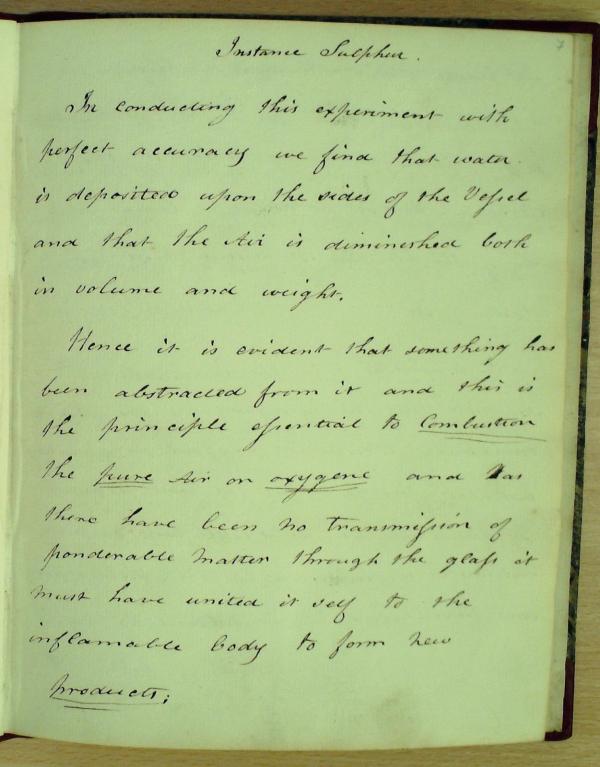 7
Instance Sulphur.
In conducting this experiment with
perfect accuracy we find that water
is deposited upon the sides of the Vessel
and that the Air is diminished both
in volume and weight.
Hence it is evident that something has
been abstracted from it and this is
the principle essential to Combustion
the pure Air or oxygene and as
there have been no transmission of
ponderable matter through the glass it
must have united it self to the
inflamable body to form new
products;